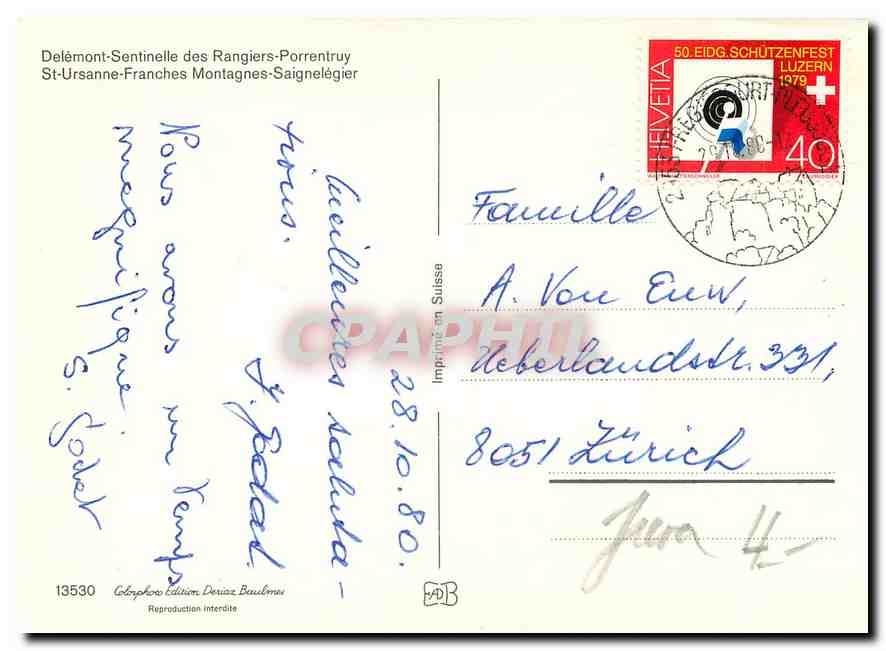 Delémont-Sentinelle des Rangiers-Porrentruy
St-Ursanne-Franches Montagnes-Saignelégier
50. EIDG. SCHÜTZENFEST
LUZERN
1979
HELVETIA
40
28.10.80.
Meilleures saluta-
tions.
J. Godat.
Nous avons un temps
magnifique.
S. Godat
Imprimé en Suisse
Famille
A. Von Euw,
Ueberlandstr. 331,
8051 Zürich
Jura 4.-
13530 Colorphoto Edition Deriaz Baulmes
Reproduction interdite
CPAPHIL